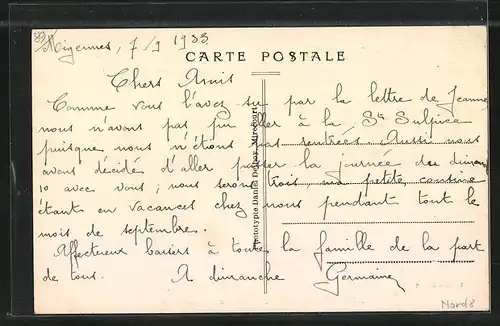 89
Migennes, 7/9 1933
CARTE POSTALE
Chers Amis
Comme vous l'avez su par la lettre de Jeanne
nous n'avons pas pu aller à la St Sulpice
puisque nous n'étions pas rentrés. Aussi nous
avons décidé d'aller passer la journée du diman
10 avec vous; nous serons trois ma petite cousine
étant en vacances chez nous pendant tout le
mois de septembre.
Affectueux baisers à toute la famille de la part
de tous. A dimanche Germaine
Phototypie Daniel Delboy, Mirecourt
Nord8